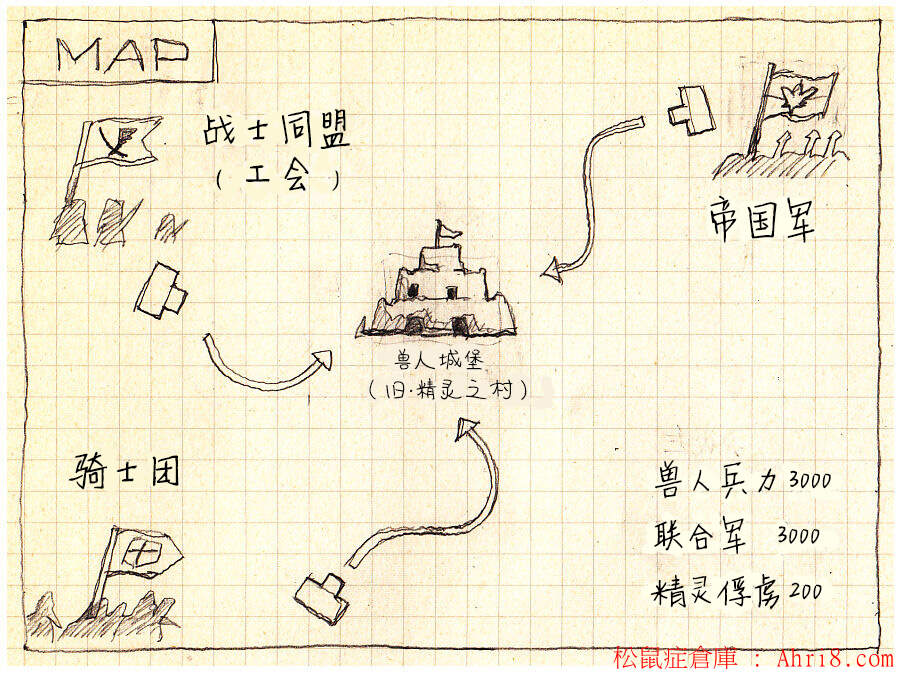 MAP
战士同盟
(工会)
帝国军
兽人城堡
(旧·精灵之村)
骑士团
兽人兵力3000
联合军 3000
精灵俘虏200
松鼠症倉庫 : Ahri8.com